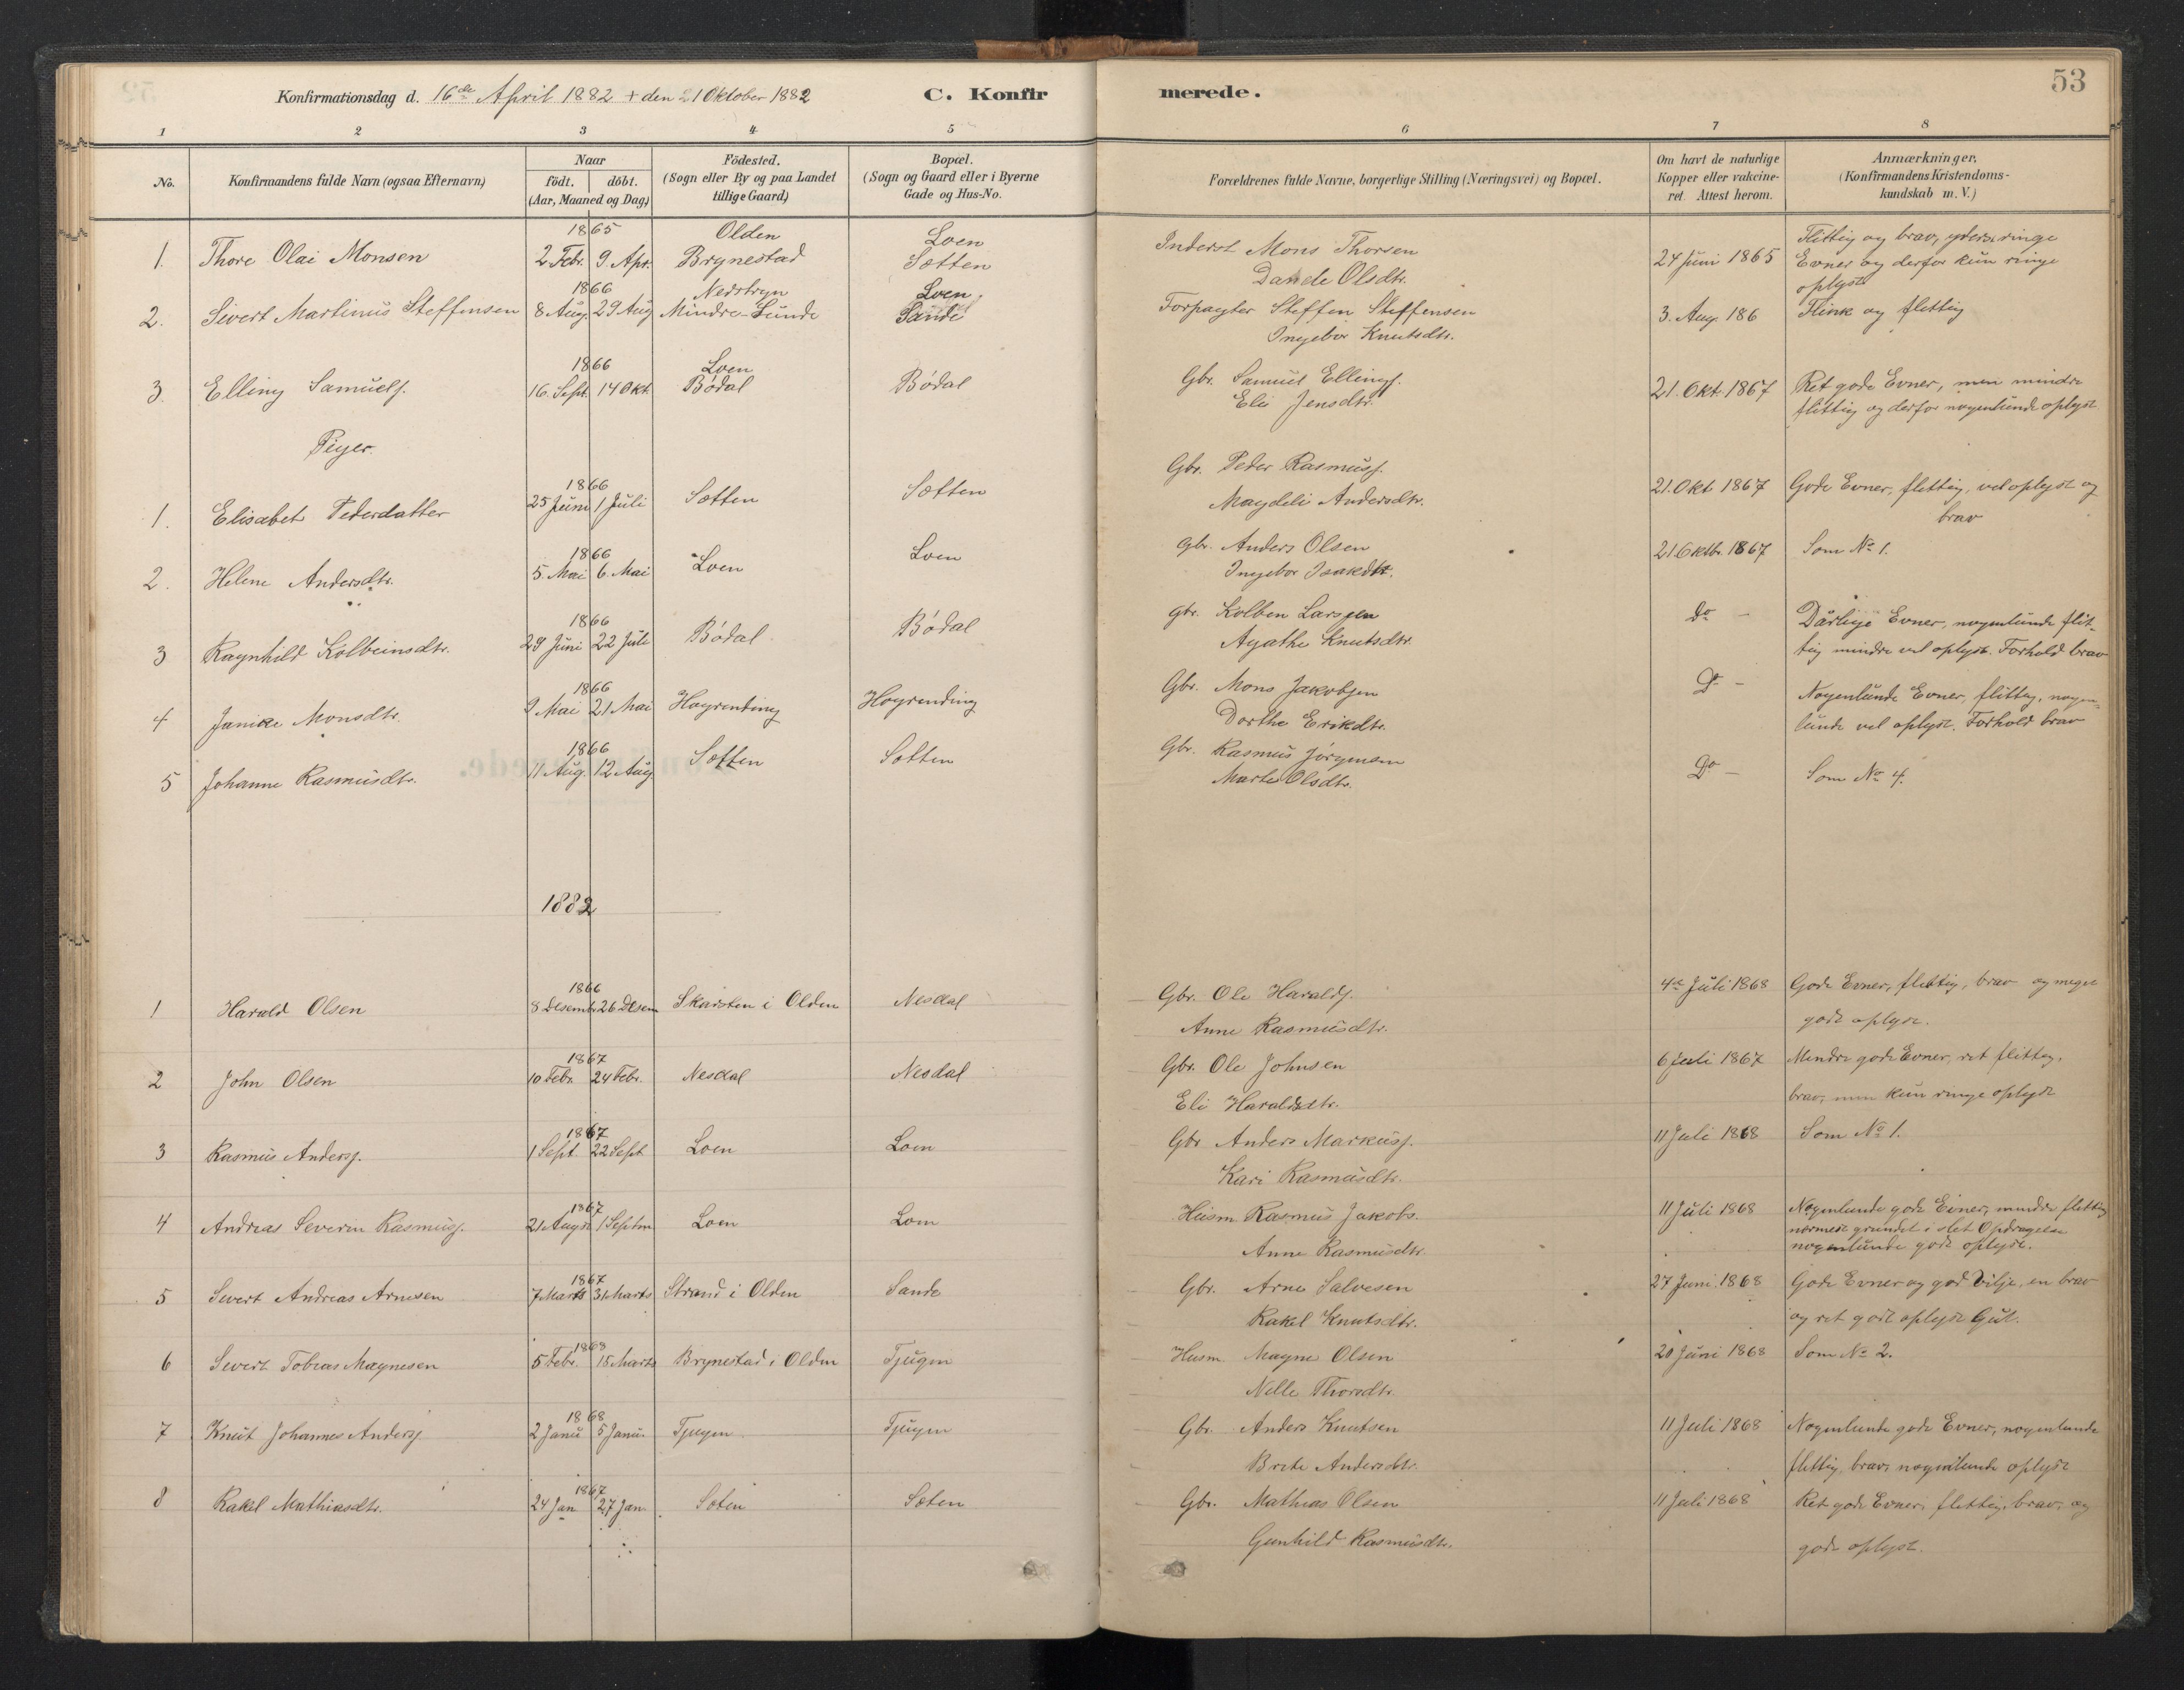 53
Konfirmationsdag d. 16de April 1882 + den 21 Oktober 1882
C. Konfirmerede.
1 2 3 4 5 6 7 8
No.
Konfirmandens fulde Navn (ogsaa Efternavn)
Naar
födt. döbt.
(Aar, Maaned og Dag)
Födested.
(Sogn eller By og paa Landet
tillige Gaard)
Bopæl.
(Sogn og Gaard eller i Byerne
Gade og Hus-No.
Forældrenes fulde Navne, borgerlige Stilling (Næringsvei) og Bopæl.
Om havt de naturlige
Kopper eller vakcine-
ret. Attest herom.
Anmærkninger.
(Konfirmandens Kristendoms-
kundskab m. V.)
1865 Olden Loen
1. Thore Olai Monsen 2 Febr. 9 Apr. Brynestad Sætten
Inderst Mons Thorsen
Danele Olsdtr.
24 Juni 1865
Flittig og brav, yderst ringe
Evner og derfor kun ringe
oplyst
1866 Nedstryn Loen
2. Sivert Martinus Steffensen 8 Aug. 29 Aug Mindre-Sunde Sande
Forpagter Steffen Steffensen
Ingebor Knutsdtr.
3. Aug. 186
Flink og flittig
1866 Loen
3. Elling Samuels. 16. Sept. 14 Okt. Bødal Bødal
Gbr. Samuel Ellings.
Eli Jensdtr.
21. Okt. 1867
Ret gode Evner, men mindre
flittig og derfor nogenlunde oplyst
Piger.
1866
1. Elisabet Pedersdatter 25 Juni 1 Juli Sætten Sætten
Gbr. Peder Rasmuss.
Magdeli Andersdtr.
21. Okt 1867
Gode Evner, flittig, vel oplyst og
brav
1866
2. Helene Andersdtr. 5. Mai 6. Mai Loen Loen
Gbr. Anders Olsen
Ingebor Isakdtr.
21 Oktbr. 1867
Som No 1.
1866
3 Ragnhild Kolbeinsdtr. 29 Juni 22 Juli Bødal Bødal
Gbr. Kolben Larssen
Agathe Knutsdtr.
Do -
Dårlige Evner, nogenlunde flit-
tig mindre vel oplyst. Forhold brav
1866
4 Janike Monsdtr. 9 Mai 21 Mai Hogrending Hogrending
Gbr. Mons Jakobsen
Dorthe Erikdtr.
Do -
Nogenlunde Evner, flittig, nogen-
lunde vel oplyst. Forhold brav
1866
5 Johanne Rasmusdtr. 11 Aug. 12 Aug Sætten Sætten
Gbr. Rasmus Jørgensen
Marte Olsdtr.
Do -
Som No 4.
1882
1866
1 Harald Olsen 8 Desemb. 26 Desem Skarsten i Olden Nesdal
Gbr. Ole Haralds.
Anne Rasmusdtr.
4de Juli 1868
Gode Evner, flittig, brav og meget
godt oplyst.
1867
2 John Olsen 10 Febr. 24 Febr. Nesdal Nesdal
Gbr. Ole Johnsen
Eli Haraldsdtr.
6 Juli 1867
Mindre gode Evner, ret flittig,
brav, men kun ringe oplyst
1867
3 Rasmus Anders. 1 Sept. 22 Sept Loen Loen
Gbr Anders Markuss.
Kari Rasmusdtr.
11 Juli 1868
Som No 1.
1867
4 Andreas Severin Rasmuss. 21 Augst. 1 Septm Loen Loen
Husm Rasmus Jakobs.
Anne Rasmusdtr.
11 Juli 1868
Nogenlunde gode Evner, mindre flittig
nærmest grundet i slet Opdragelse
nogenlunde godt oplyst.
1867
5 Sivert Andreas Arnesen 7 Marts 31 Marts Strand i Olden Sande
Gbr. Arne Salvesen
Rakel Knutsdtr.
27 Juni 1868
Gode Evner og god Vilje, en brav
og ret godt oplyst Gut.
1868
6 Sivert Tobias Magnesen 5 Febr. 15 Marts Brynestad i Olden Tjugen
Husm. Magne Olsen
Nille Thorsdtr.
20 Juni 1868
Som No 2.
1868
7 Knut Johannes Anders. 2 Janu 5 Janu. Tjugen Tjugen
Gbr. Anders Knutsen
Brite Andersdtr.
11 Juli 1868
Nogenlunde gode Evner, nogenlunde
flittig, brav, nogenlunde oplyst
1867
8 Rakel Mathiasdtr. 24 Jan 27 Jan. Sæten Sæten
Gbr. Mathias Olsen
Gunhild Rasmusdtr.
11 Juli 1868
Ret gode Evner, flittig, brav, og
godt oplyst.